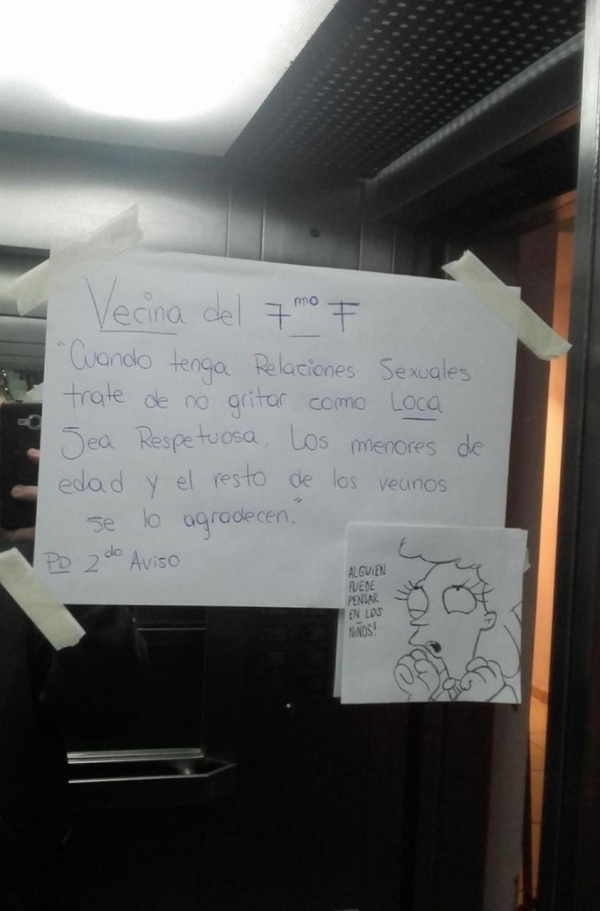 Vecina del 7mo F
"Cuando tenga Relaciones Sexuales
trate de no gritar como Loca
Sea Respetuosa. Los menores de
edad y el resto de los vecinos
se lo agradecen."
PD 2do Aviso
ALGUIEN
PUEDE
PENSAR
EN LOS
NIÑOS!